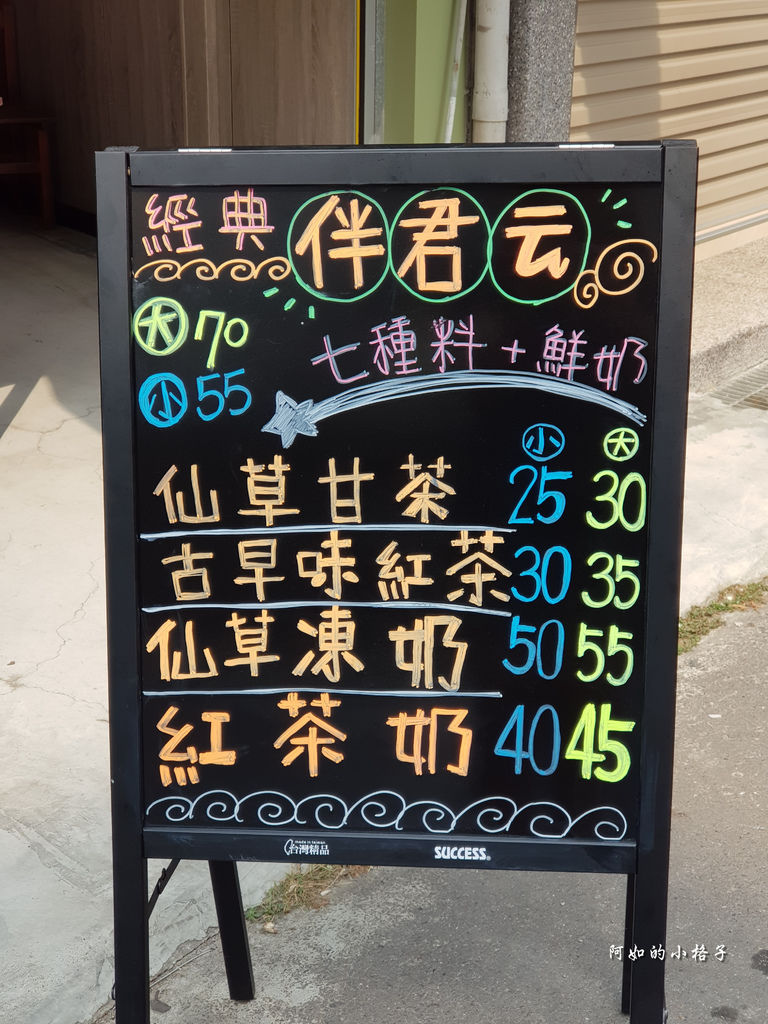 經典 伴君云
大 70
七種料+鮮奶
小 55
小 大
仙草甘茶 25 30
古早味紅茶 30 35
仙草凍奶 50 55
紅茶奶 40 45
MADE IN TAIWAN
台灣精品 SUCCESS®
阿如的小格子